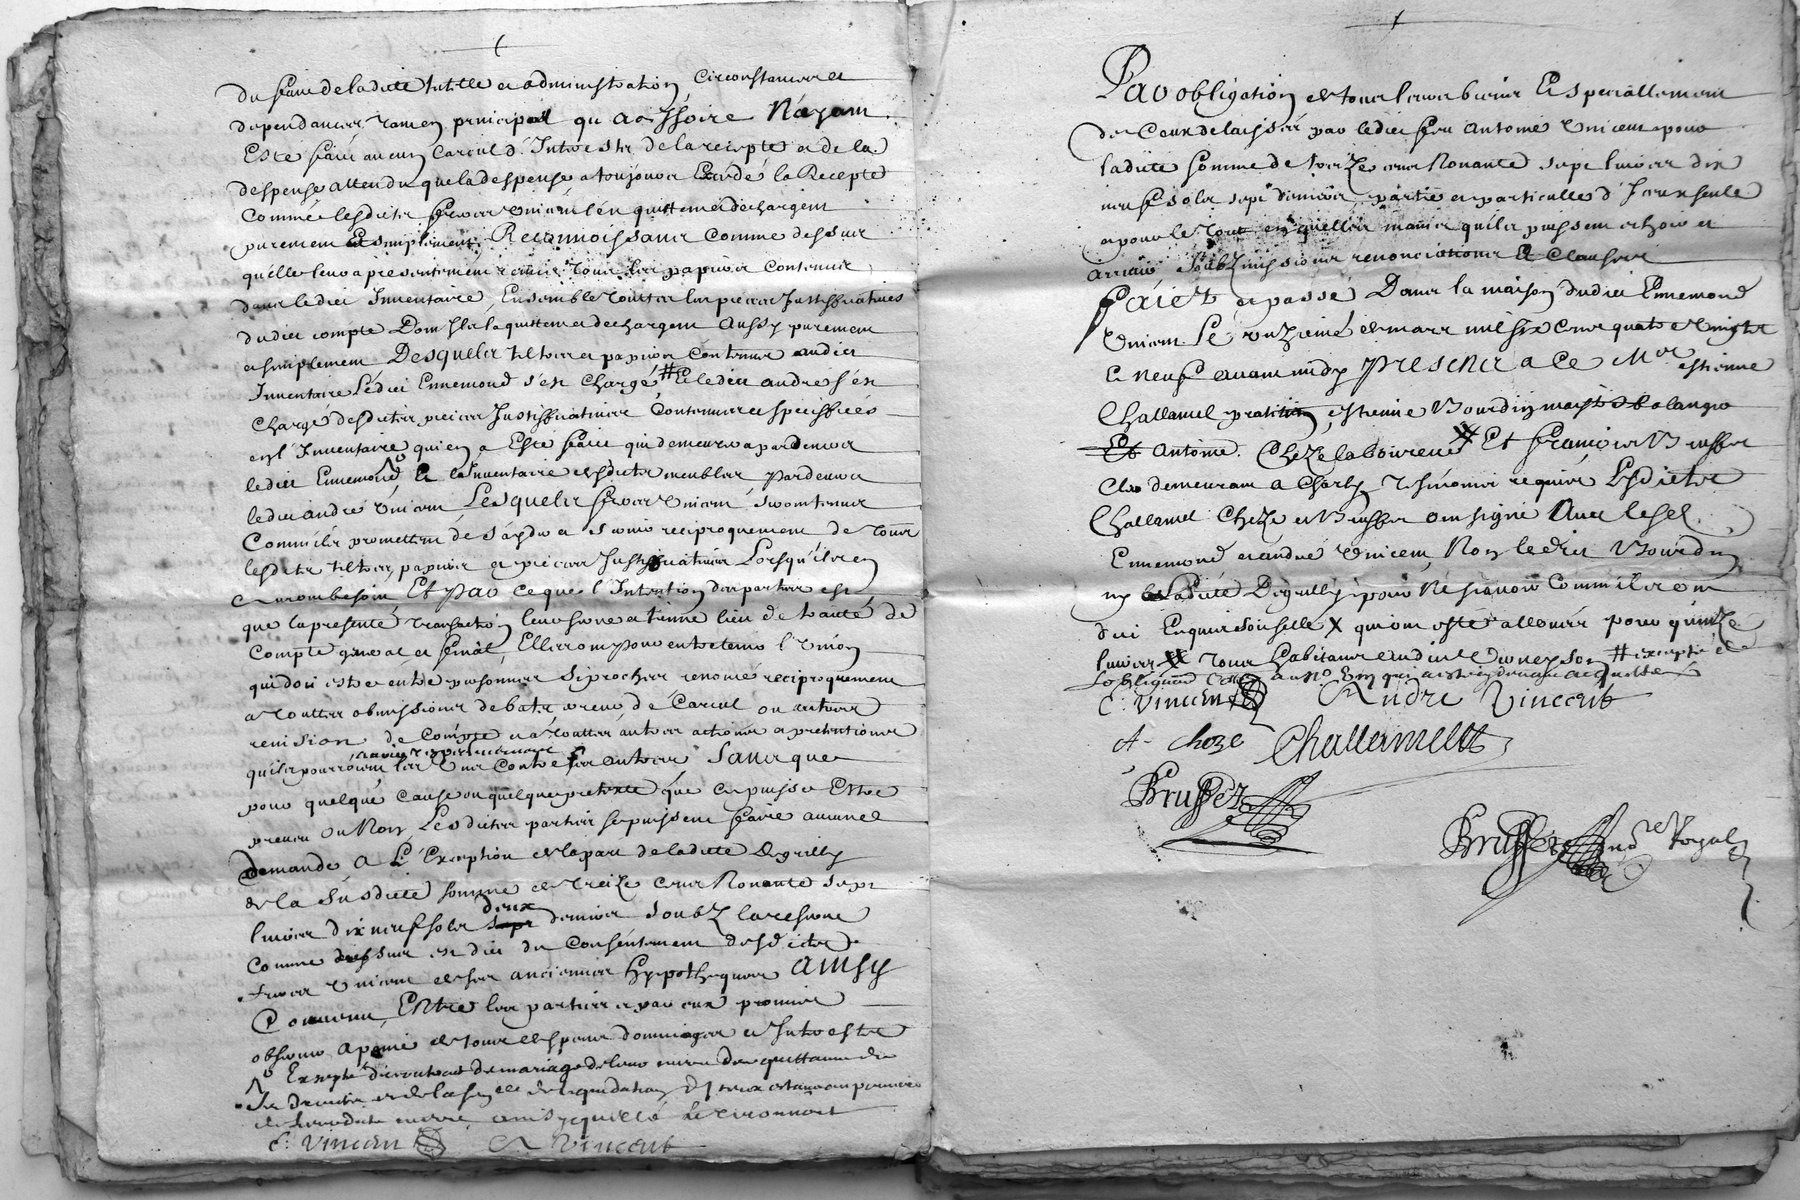 du faict de la dicte tutelle et administration circonstances et
dependances tant en principal qu accessoire N'ayant
Esté faict aucun calcul d'Interestz de la recepte et de la
despense attendu que la despense a toujours Excedé la Recepte
Comme lesdictz freres Vincent l'en quittent et dechargent
purement et simplement, Reconnoissans comme dessus
qu'elle leur a presentement remis tous les papiers contenus
dans ledict Inventaire, Ensemble toutes les pieces Justifficatives
dudict compte Dont Ilz la quittent et dechargent Aussy purement
et simplement Desquels tiltres et papiers contenus audict
Inventaire Ledict Ennemond s'est chargé # Et ledict andré s'est
chargé desdictes pieces Justifficatives contenues et speciffiées
en l'Inventaire qui en a Esté faict qui demeurera pardevers
ledict Ennemond Et l'Inventaire desdictz meubles pardevers
ledict andré Vincent Lesquels freres Vincent
Comme ilz promettent de s'ayder et reciproquement de tous
lesdictz tiltres, papiers et pieces Justifficatives Lorsqu'ilz en
auront besoin Et par ce que l'Intention des parties est
que la presente transaction leur serve et tienne lieu de traitté de
compte general et final, Elles ont pour entretenir l'Union
qui doit estre entre personnes si proches renoncé reciproquement
a touttes obmissions debatz erreur de calcul ou autres
revision de compte et a touttes autres actions et pretentions
qu'ils pourroient avoir les Uns contre les autres Sans que
pour quelque cause ou quelque pretexte que ce puisse Estre
preveu ou Non, Lesdictes parties se puissent faire aucune
demande A L'Exception de la part de ladicte Degrilly
de la susdicte somme de treize cens Nonante sept
livres dix neuf solz sept deux deniers soubz la reserve
comme dessus est dict du consentement desdictz
freres Vincent de ses anciennes hypotheques Ainsy
Convenu Entre les parties et par eux promis
observer A peine de tous despens dommages et Interestz
Excepté du contract de mariage de leur mere des quittances de
de leurdicte mere
E: Vincent A Vincent
Par obligation de tous leurs biens Et specialement
de Ceux delaissés par ledict feu Antoine Vincent pour
ladicte somme de treize cens Nonante sept livres dix
neuf solz sept deniers, partie et particulle d'Iceux seule
et pour le tout en quelle maniere qu'ils puissent eschoir et
arriver Soubzmissions renonciations Et Clauses
Faict et passé Dans la maison dudict Ennemond
Vincent Le unzieme de mars mil six cens quatre vingtz
Et neuf avant midy Presens a ce Mes estienne
Challamel praticien, estienne Bourdin maist boulanger
Et Antoine Cheze laboureur # Et françois Brusset
Clerc demeurant a Charly Tesmoins requis Lesdictz
Challamel Cheze et Brusset ont signé Avec lesd.
Ennemond et andré Vincent, Non ledict Bourdin
ny Ladicte Degrilly pour Ne sçavoir Comme ilz ont
dict Enquis et sommés X qui ont esté allouées pour quinze
livres # tous habitans audict
E: Vincent Andre Vincent
A. cheze Challamel
Brusset
Brusset no.re Royal